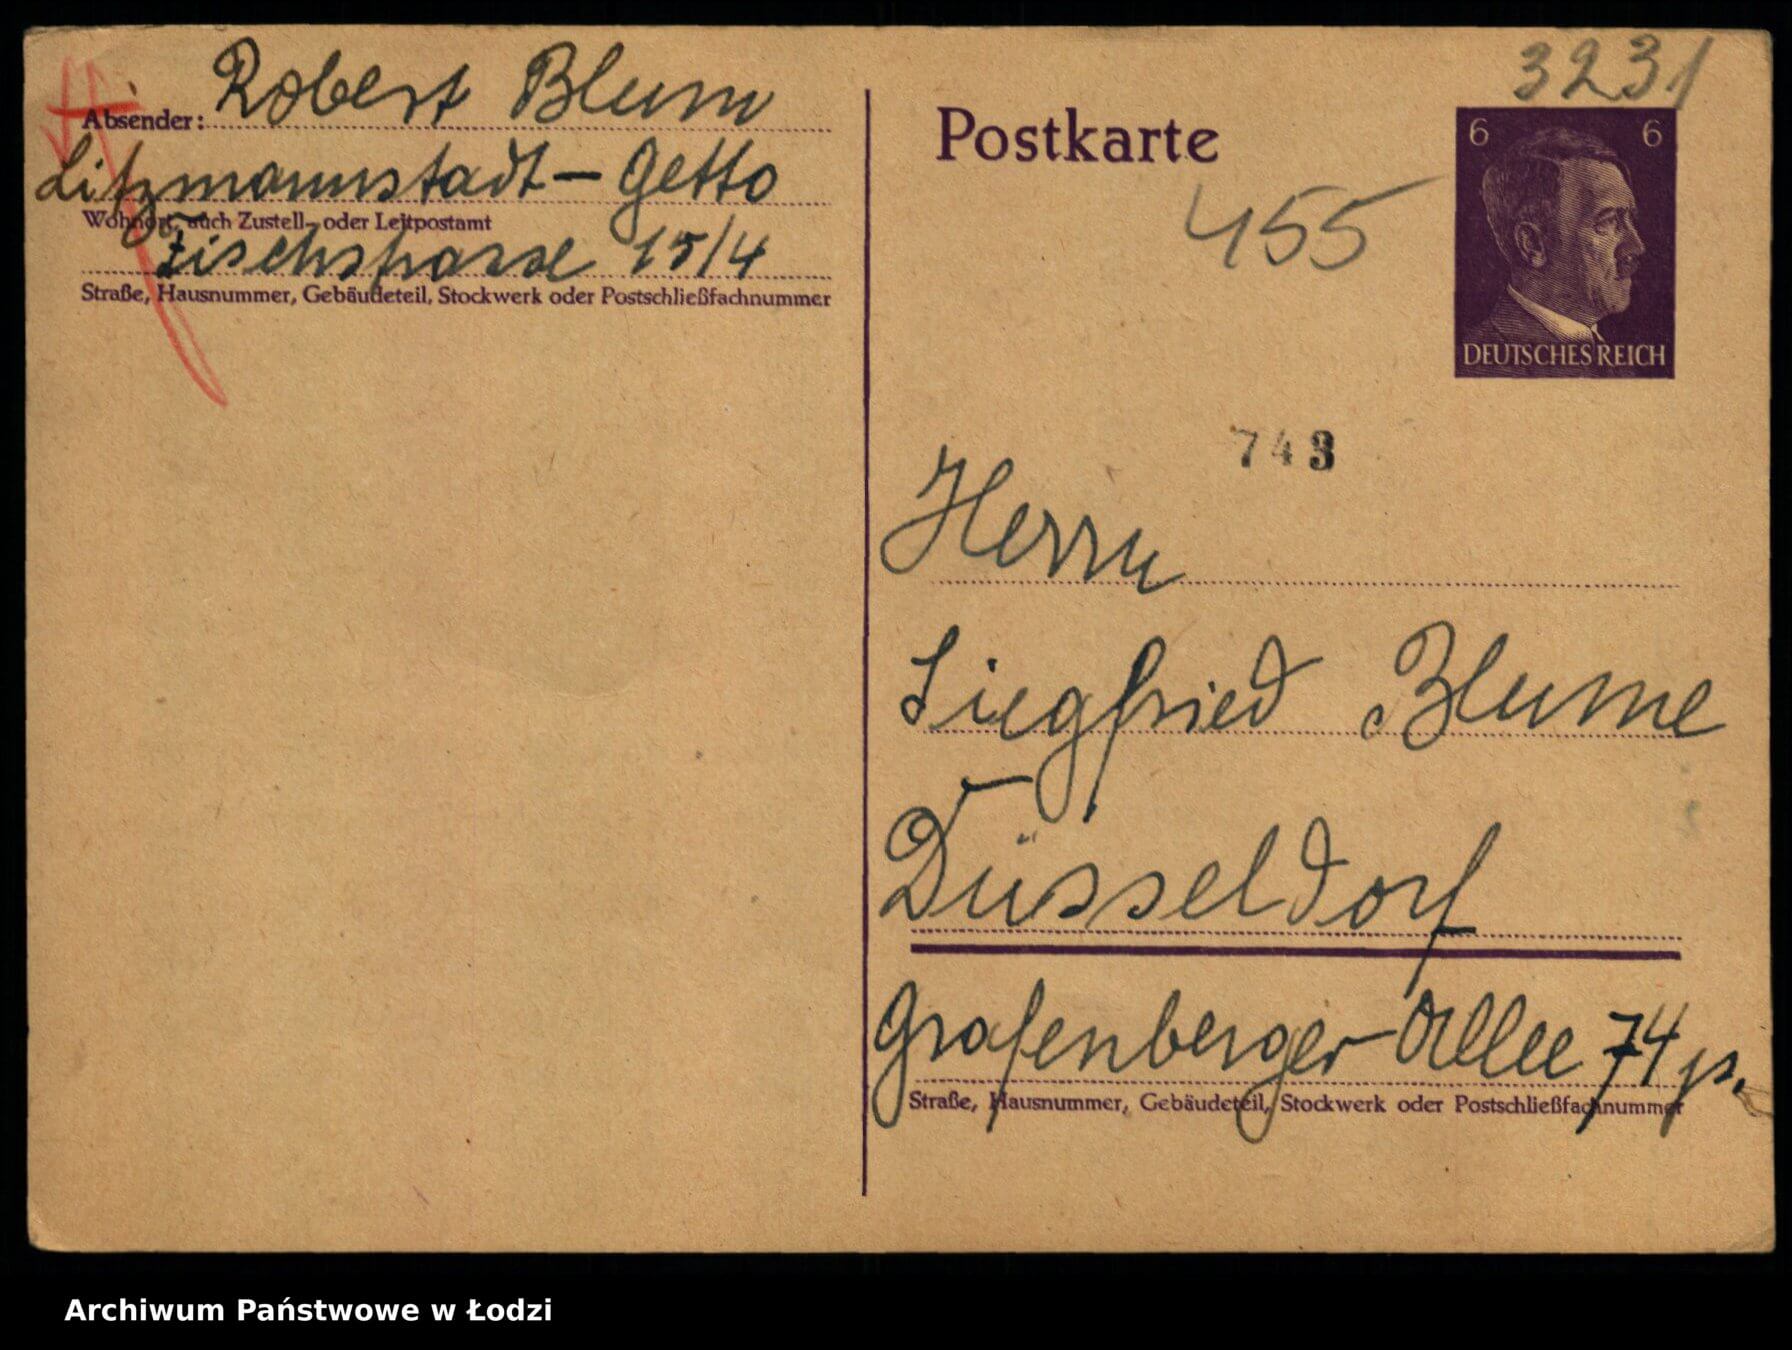 3231
Absender: Robert Blum
Litzmannstadt - Getto
Wohnort, auch Zustell- oder Leitpostamt
Fischstrasse 15/4
Straße, Hausnummer, Gebäudeteil, Stockwerk oder Postschließfachnummer
Postkarte
6 6
455
DEUTSCHES REICH
743
Herrn
Siegfried Blume
Düsseldorf
Grafenberger-Allee 74
Straße, Hausnummer, Gebäudeteil, Stockwerk oder Postschließfachnummer
Archiwum Państwowe w Łodzi